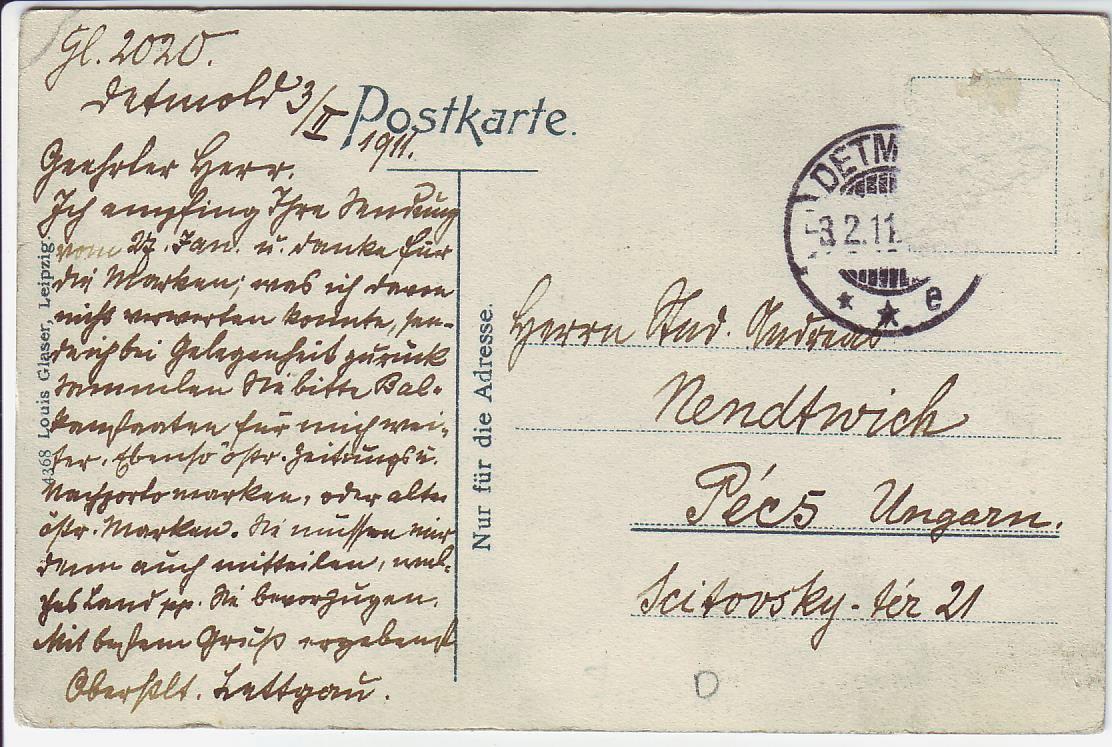 Gl. 2020.
Detmold 3/II 1911.
Postkarte.
Geehrter Herr.
Ich empfing Ihre Sendung
vom 27. Jan. u. danke für
die Marken; was ich davon
nicht verwerten konnte, sen-
de ich bei Gelegenheit zurück
Sammlen Sie bitte Bal-
kanstaaten für mich wei-
ter. Ebenso östr. Zeitungs u.
Nachportomarken, oder alte
östr. Marken. Sie müssen mir
dann auch mitteilen, wel-
ches Land pp. Sie bevorzugen.
Mit bestem Gruß ergebenst
Oberstlt. Lettgau.
4368 Louis Glaser, Leipzig.
Nur für die Adresse.
DETM
3.2.11.
* * e
Herrn Stud. Andreas
Nendtwich
Pécs Ungarn.
Scitovsky-tér 21
D